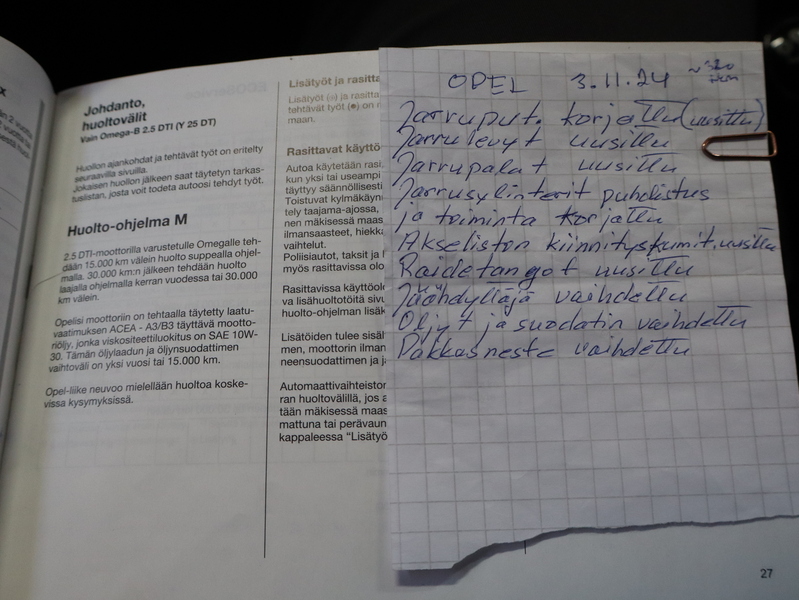 Johdanto,
huoltovälit
Vain Omega-B 2.5 DTI (Y 25 DT)
Huollon ajankohdat ja tehtävät työt on eritelty
seuraavilla sivuilla.
Jokaisen huollon jälkeen saat täytetyn tarkas-
tuslistan, josta voit todeta autoosi tehdyt työt.
Huolto-ohjelma M
2.5 DTI-moottorilla varustetulle Omegalle teh-
dään 15.000 km välein huolto suppealla ohjel-
malla. 30.000 km:n jälkeen tehdään huolto
laajalla ohjelmalla kerran vuodessa tai 30.000
km välein.
Opelisi moottoriin on tehtaalla täytetty laatu-
vaatimuksen ACEA - A3/B3 täyttävä mootto-
riöljy, jonka viskositeettiluokitus on SAE 10W-
30. Tämän öljylaadun ja öljynsuodattimen
vaihtoväli on yksi vuosi tai 15.000 km.
Opel-liike neuvoo mielellään huoltoa koske-
vissa kysymyksissä.
Lisätyöt ja rasitta
Lisätyöt (○) ja rasittavat
tehtävät työt (●) on n
maan.
Rasittavat käyttö
Autoa käytetään rasi
kun yksi tai useampi
täyttyy säännöllisesti
Toistuvat kylmäkäyn
tely taajama-ajossa,
nen mäkisessä maas
ilmansaasteet, hiekka
vaihtelut.
Poliisiautot, taksit ja l
myös rasittavissa olo
Rasittavissa käyttöol
va lisähuoltotöitä sivu
huolto-ohjelman lisäk
Lisätöiden tulee sisäl
men, moottorin ilman
neensuodattimen ja ja
Automaattivaihteiston
ran huoltovälillä, jos a
tään mäkisessä maas
mattuna tai perävaun
kappaleessa "Lisätyö
OPEL 3.11.24 ~320
tkm
Jarruput. korjattu (uusittu)
Jarrulevyt uusittu
Jarrupalat uusittu
Jarrusylinterit puhdistus
ja toiminta korjattu
Akseliston kiinnityskumit uusittu
Raidetangot uusittu
Jäähdyttäjä vaihdettu
Öljyt ja suodatin vaihdettu
Pakkasneste vaihdettu
27